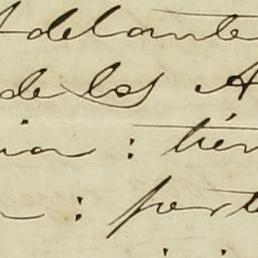 delante
de los A
ia : tier
: parte